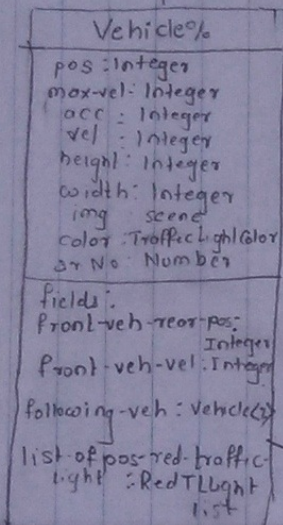 Vehicle%
pos : Integer
max-vel : Integer
acc : Integer
vel : Integer
height : Integer
width : Integer
img scene
color : TrafficLightColor
Sr No : Number
fields :
front-veh-rear-pos :
Integer
front-veh-vel : Integer
following-veh : Vehicle(2)
list-of pos-red-traffic-
light : RedTLLight
list